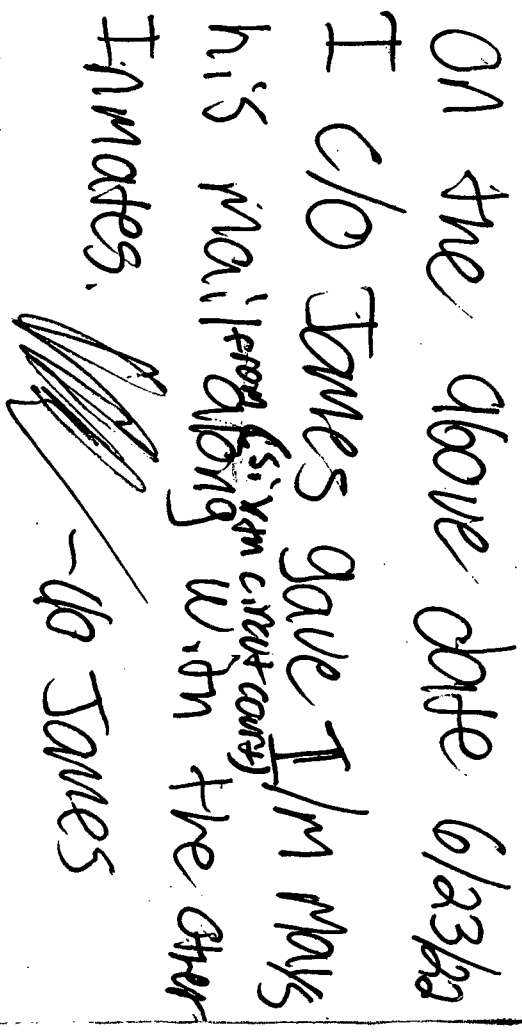 On the above date 6/23/22
I c/o James gave I/M Mays
from (sixth circuit court)
his mail along with the other
Inmates.
-c/o James